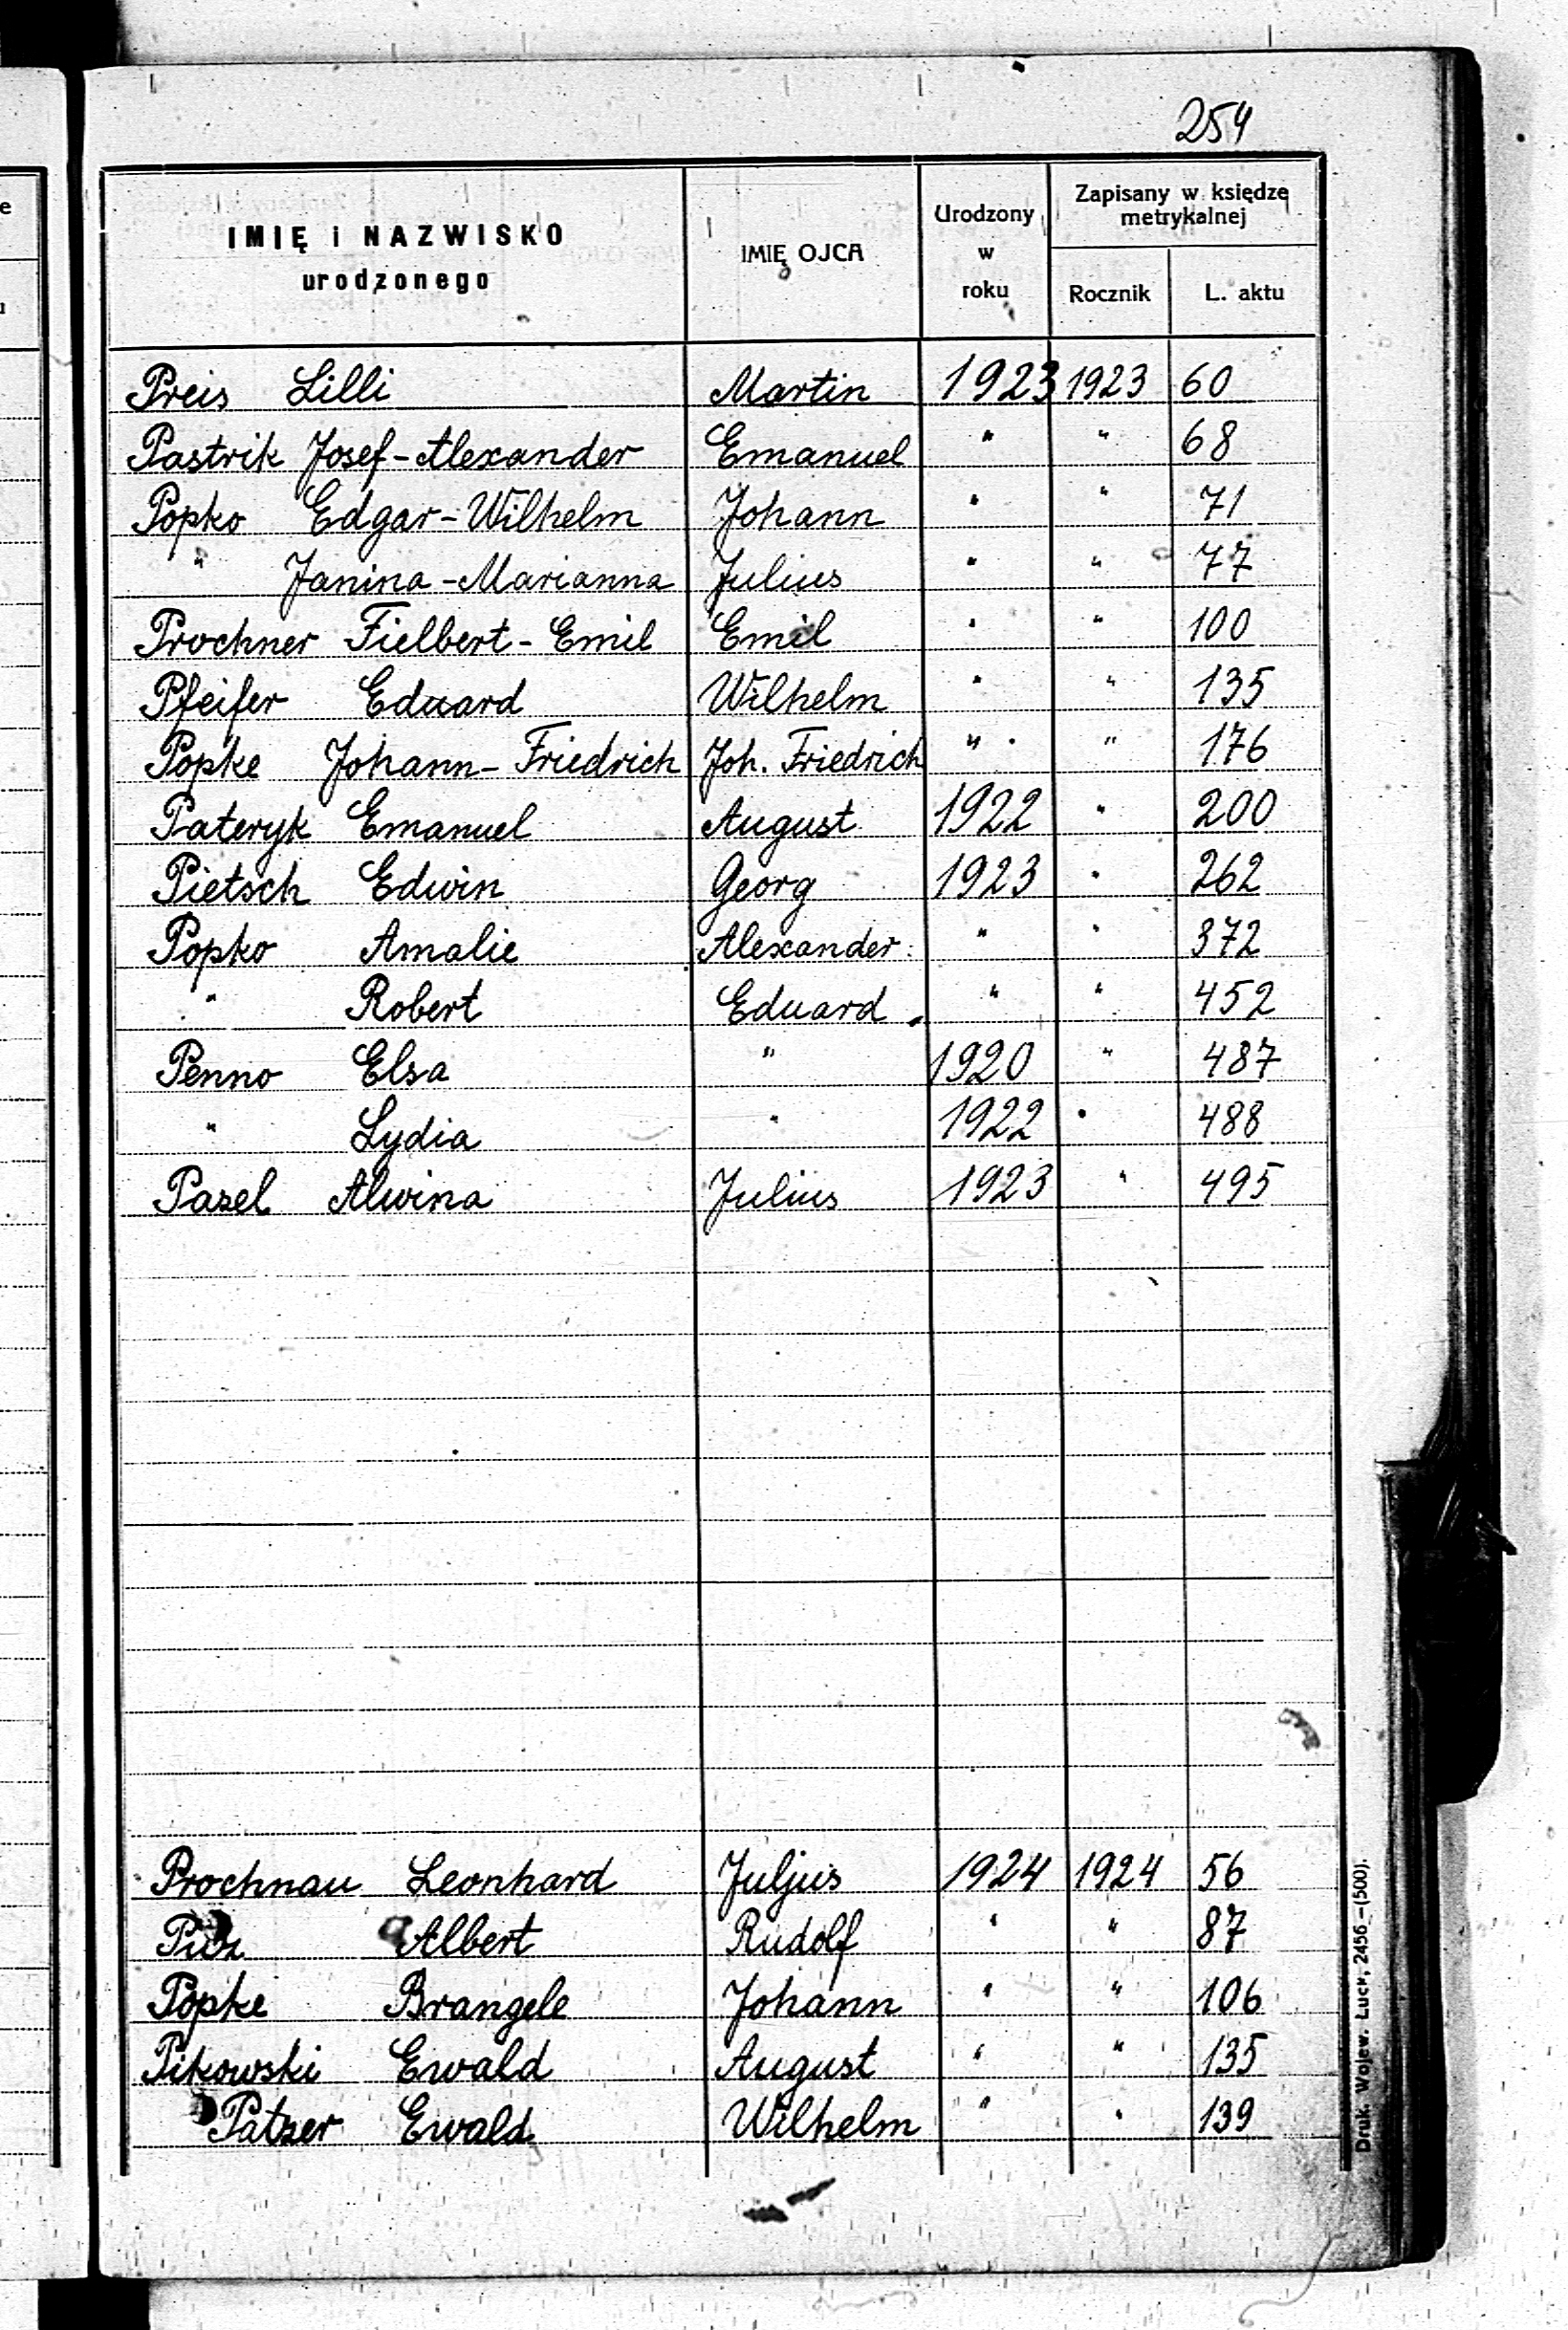 254
IMIĘ i NAZWISKO urodzonego | IMIĘ OJCA | Urodzony w roku | Zapisany w księdze metrykalnej
Rocznik | L. aktu
Preis Lilli | Martin | 1923 | 1923 | 60
Pastrik Josef-Alexander | Emanuel | " | " | 68
Popko Edgar-Wilhelm | Johann | " | " | 71
" Janina-Marianna | Julius | " | " | 77
Prochner Fielbert-Emil | Emil | " | " | 100
Pfeifer Eduard | Wilhelm | " | " | 135
Popke Johann-Friedrich | Joh. Friedrich | " | " | 176
Pateryk Emanuel | August | 1922 | " | 200
Pietsch Edwin | Georg | 1923 | " | 262
Popko Amalie | Alexander | " | " | 372
" Robert | Eduard | " | " | 452
Penno Elsa | " | 1920 | " | 487
" Lydia | " | 1922 | " | 488
Pasel Alwina | Julius | 1923 | " | 495
Prochnau Leonhard | Juljus | 1924 | 1924 | 56
Albert | Rudolf | " | " | 87
Popke Brangele | Johann | " | " | 106
Pikowski Ewald | August | " | " | 135
Patzer Ewald | Wilhelm | " | " | 139
Druk. Wojew. Łuck, 2456 —(500).